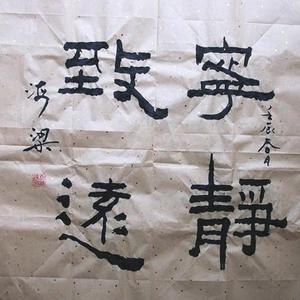 寧靜
致遠
壬辰春月
河梁